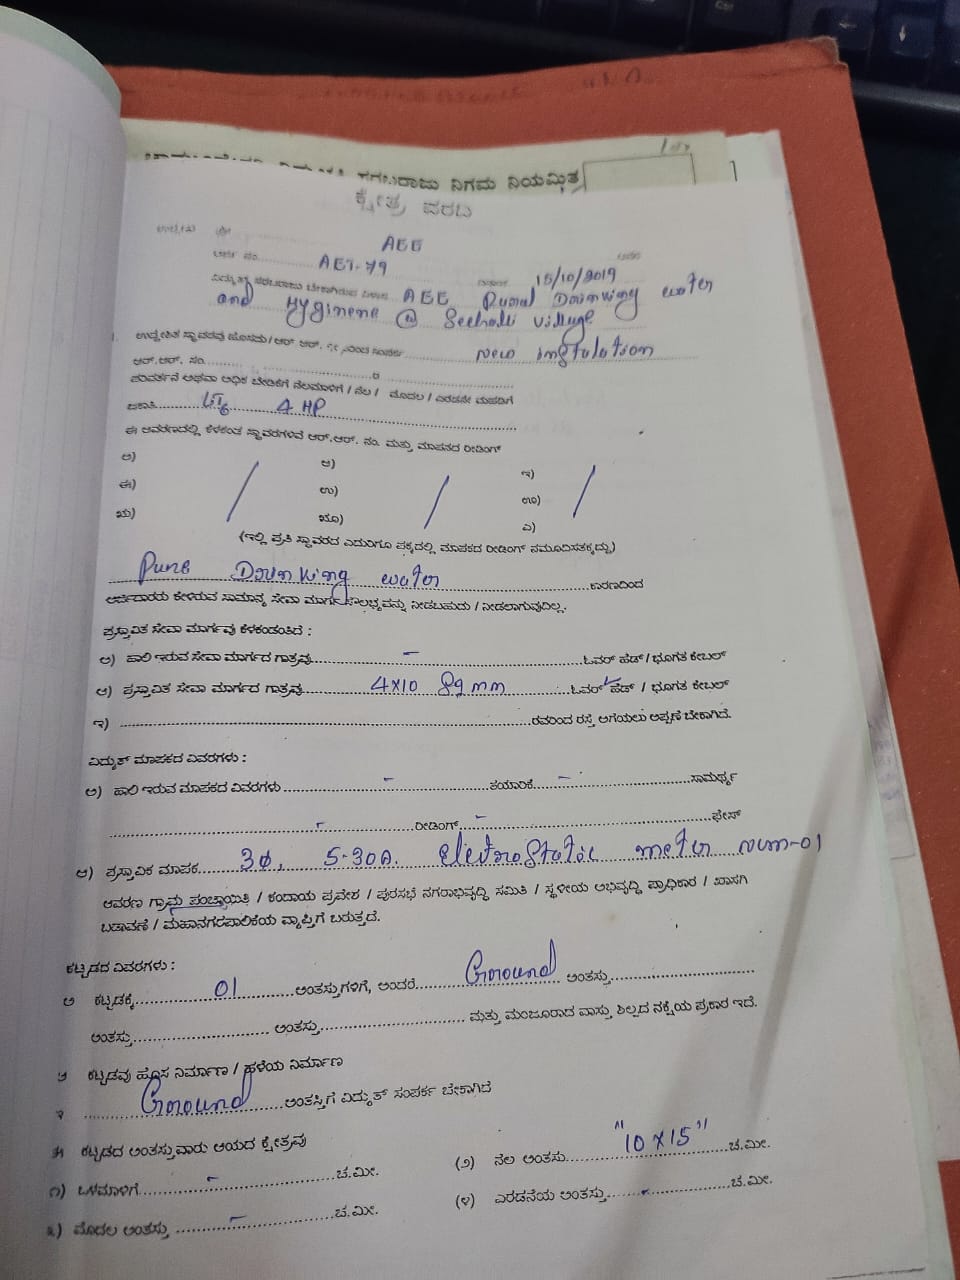 ಸರಬರಾಜು ನಿಗಮ ನಿಯಮಿತ
ಕ್ಷೇತ್ರ ವರದಿ
AEE
AET-79
15/10/2019
AEE Rural Drinking water
and Hyginene @ Seehalli village
New instulation
ಆರ್.ಆರ್. ನಂ.
ಪರಿವರ್ತನೆ ಅಥವಾ ಅಧಿಕ ಬೇಡಿಕೆಗೆ ನೆಲಮಾಳಿಗೆ / ನೆಲ / ಮೊದಲ / ಎರಡನೇ ಮಹಡಿಗೆ
ಜಕಾತಿ 4 HP
ಈ ಆವರಣದಲ್ಲಿ ಕೆಳಕಂಡ ಸ್ಥಾವರಗಳಿವೆ ಆರ್.ಆರ್. ನಂ. ಮತ್ತು ಮಾಪನದ ರೀಡಿಂಗ್
ಅ) ಆ) ಇ)
ಈ) ಉ) ಊ)
ಋ) ೠ) ಎ)
(ಇಲ್ಲಿ ಪ್ರತಿ ಸ್ಥಾವರದ ಎದುರಿಗೂ ಪಕ್ಕದಲ್ಲಿ ಮಾಪಕದ ರೀಡಿಂಗ್ ನಮೂದಿಸತಕ್ಕದ್ದು)
Pure Drinking water ಕಾರಣದಿಂದ
ಅರ್ಜಿದಾರರು ಕೇಳಿರುವ ಸಾಮಾನ್ಯ ಸೇವಾ ಮಾರ್ಗ ಸೌಲಭ್ಯವನ್ನು ನೀಡಬಹುದು / ನೀಡಲಾಗುವುದಿಲ್ಲ.
ಪ್ರಸ್ತಾವಿತ ಸೇವಾ ಮಾರ್ಗವು ಕೆಳಕಂಡಂತಿದೆ :
ಅ) ಹಾಲಿ ಇರುವ ಸೇವಾ ಮಾರ್ಗದ ಗಾತ್ರವು - ಓವರ್ ಹೆಡ್ / ಭೂಗತ ಕೇಬಲ್
ಆ) ಪ್ರಸ್ತಾವಿತ ಸೇವಾ ಮಾರ್ಗದ ಗಾತ್ರವು 4x10 sqmm ಓವರ್ ಹೆಡ್ / ಭೂಗತ ಕೇಬಲ್
ಇ) ರವರಿಂದ ರಸ್ತೆ ಅಗೆಯಲು ಅಪ್ಪಣೆ ಬೇಕಾಗಿದೆ.
ವಿದ್ಯುತ್ ಮಾಪಕದ ವಿವರಗಳು :
ಅ) ಹಾಲಿ ಇರುವ ಮಾಪಕದ ವಿವರಗಳು - ತಯಾರಿಕೆ - ಸಾಮರ್ಥ್ಯ
- ರೀಡಿಂಗ್ - ಫೇಸ್
ಆ) ಪ್ರಸ್ತಾವಿಕ ಮಾಪಕ 3Φ, 5-30A. Electrostatic meter num-01
ಆವರಣ ಗ್ರಾಮ ಪಂಚಾಯಿತಿ / ಕಂದಾಯ ಪ್ರವೇಶ / ಪುರಸಭೆ ನಗರಾಭಿವೃದ್ಧಿ ಸಮಿತಿ / ಸ್ಥಳೀಯ ಅಭಿವೃದ್ಧಿ ಪ್ರಾಧಿಕಾರ / ಖಾಸಗಿ
ಬಡಾವಣೆ / ಮಹಾನಗರಪಾಲಿಕೆಯ ವ್ಯಾಪ್ತಿಗೆ ಬರುತ್ತದೆ.
ಕಟ್ಟಡದ ವಿವರಗಳು :
ಅ ಕಟ್ಟಡಕ್ಕೆ 01 ಅಂತಸ್ತುಗಳಿಗೆ, ಅಂದರೆ Ground ಅಂತಸ್ತು
ಅಂತಸ್ತು ಅಂತಸ್ತು ಮತ್ತು ಮಂಜೂರಾದ ವಾಸ್ತು ಶಿಲ್ಪದ ನಕ್ಷೆಯ ಪ್ರಕಾರ ಇದೆ.
ಆ ಕಟ್ಟಡವು ಹೊಸ ನಿರ್ಮಾಣ / ಹಳೆಯ ನಿರ್ಮಾಣ
ಇ Ground ಅಂತಸ್ತಿಗೆ ವಿದ್ಯುತ್ ಸಂಪರ್ಕ ಬೇಕಾಗಿದೆ
ಈ ಕಟ್ಟಡದ ಅಂತಸ್ತುವಾರು ಆಯದ ಕ್ಷೇತ್ರವು
೧) ಒಳಮಾಳಿಗೆ - ಚ.ಮೀ. (೨) ನೆಲ ಅಂತಸು "10 x 15" ಚ.ಮೀ.
೩) ಮೊದಲ ಅಂತಸ್ತು - ಚ.ಮೀ. (೪) ಎರಡನೆಯ ಅಂತಸ್ತು - ಚ.ಮೀ.